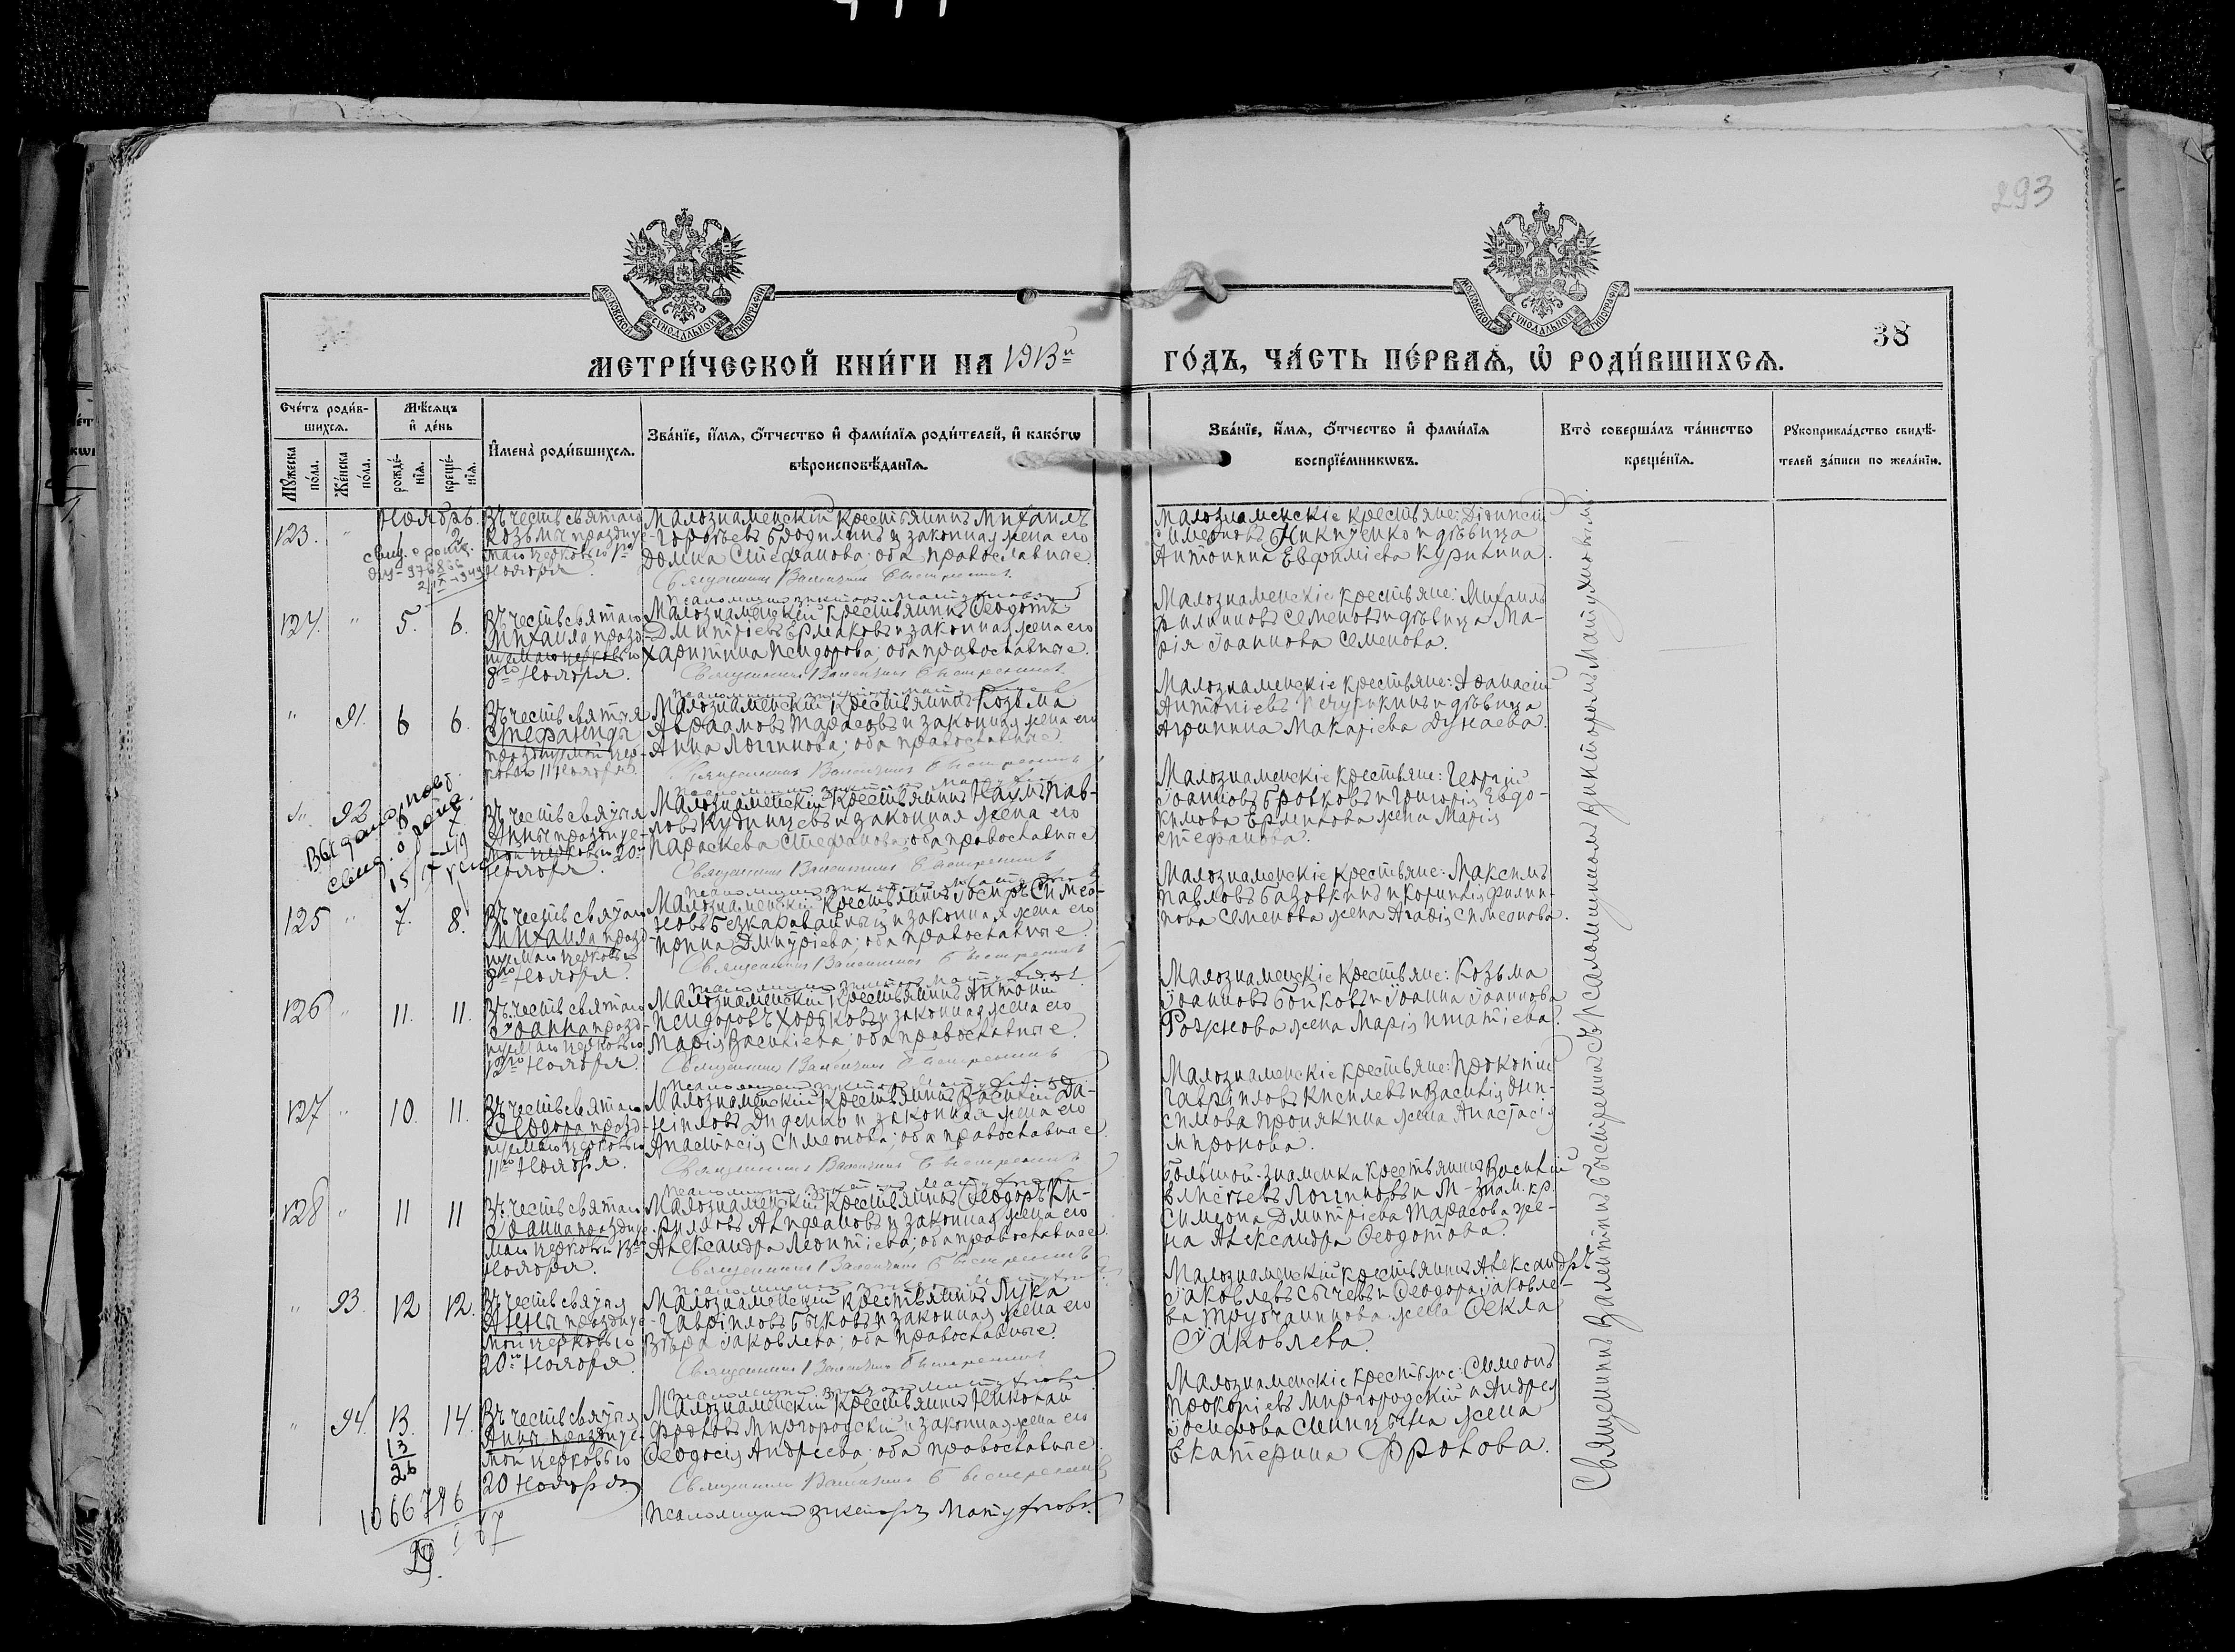 293
38
МОСКОВСКОЙ СѴНОДАЛЬНОЙ ТИПОГРАФІИ
МОСКОВСКОЙ СѴНОДАЛЬНОЙ ТИПОГРАФІИ
МЕТРИ́ЧЕСКОЙ КНИ́ГИ НА 1913й ГО́ДЪ, ЧА́СТЬ ПЕ́РВАѦ, Ѡ҆ РОДИ́ВШИХСѦ.
Сче́тъ роди́в-
шихсѧ.
Мѣ́сѧцъ
и҆ де́нь
Мꙋ́жеска по́ла.
Же́нска по́ла.
рожде́-
нїѧ.
креще́-
нїѧ.
И҆мена̀ роди́вшихсѧ.
Зва́нїе, и҆́мѧ, ѻ҆́тчество и҆ фами́лїѧ роди́телей, и҆ како́гѡ
вѣроисповѣ́данїѧ.
Зва́нїе, и҆́мѧ, ѻ҆́тчество и҆ фами́лїѧ
воспрїе́мникѡвъ.
Кто̀ соверша́лъ та́инство
креще́нїѧ.
Рꙋкоприкла́дство свидѣ́-
телей за́писи по жела́нїю.
Ноябрь.
123. " 1 2
Въ честь святаго
Козьмы празднуе-
маго церковью 1го
Ноября.
Малознаменскій крестьянинъ Михаилъ
Георгіевъ Бродилинъ и законная жена его
Домна Стефанова; оба православные.
Священникъ Валентинъ Быстревинъ
Малознаменскіе крестьяне:
Симеоновъ Никитенко и дѣвица
Антонина Евфиміева Курилина.
свид. о рожд.
124. " 5. 6.
Въ честь святаго
Михаила празд-
нуемаго церковью
8го Ноября.
Малознаменскій крестьянинъ Ѳеодотъ
Дмитріевъ Ермаковъ и законная жена его
Харитина Исидорова; оба православные.
Малознаменскіе крестьяне: Михаилъ
Филиповъ Семеновъ и дѣвица Ма-
рія Іоаннова Семенова.
" 91. 6 6.
Въ честь святыя
Стефаниды
празднуемой цер-
ковью 11 Ноября.
Малознаменскій крестьянинъ Козьма
Авраамовъ Тарасовъ и законная жена его
Анна Логгинова; оба православные.
Малознаменскіе крестьяне: Аѳанасій
Антоніевъ и дѣвица
Агрипина Макаріева Дунаева.
" 92 7.
Въ честь святыя
Анны празднуе-
мой церковью 20го
Ноября.
Малознаменскій крестьянинъ Наумъ Пав-
ловъ Кудинцевъ и законная жена его
Параскева Стефанова; оба православные
Малознаменскіе крестьяне: Георгій
Іоанновъ Бровковъ и Григорія Евдо-
кимова жена Марія
Стефанова.
125 " 7. 8.
Въ честь святаго
Михаила празд-
нуемаго церковью
8го Ноября.
Малознаменскій крестьянинъ Іосифъ Симео-
новъ Безкараваный и законная жена его
Ирина Дмитріева; оба православные.
Малознаменскіе крестьяне: Максимъ
Павловъ и Корнилія Филип-
пова Семенова жена Агафія Симеонова.
126 " 11. 11.
Въ честь святаго
Іоанна празд-
нуемаго церковью
Ноября.
Малознаменскій крестьянинъ Антоній
Исидоровъ Хорьковъ и законная жена его
Марія Василіева; оба православные.
Малознаменскіе крестьяне: Козьма
Іоанновъ Бойковъ и Іоанна Іоаннова
Рожнова жена Марія Игнатіева.
127 " 10. 11.
Въ честь святаго
Ѳеодора празд-
нуемаго церковью
11го Ноября.
Малознаменскій крестьянинъ Василій Да-
ніиловъ Диденко и законная жена его
Анастасія Симеонова; оба православные.
Малознаменскіе крестьяне: Прокопій
Гавріиловъ Киселевъ и Василія Они-
симова Пронякина жена Анастасія
Миронова.
128 " 11 11
Въ честь святаго
Іоанна празднуе-
маго церковью
Ноября.
Малознаменскій крестьянинъ Ѳеодоръ Ки-
рилловъ и законная жена его
Александра Леонтіева; оба православные.
Большой-Знаменки крестьянинъ Василій
Елисѣевъ Логгиновъ и М-Знам. кр.
Симеона Дмитріева Тарасова же-
на Александра Ѳеодотова.
" 93. 12 12.
Въ честь святыя
празднуе-
мой церковью
20го Ноября.
Малознаменскій крестьянинъ Лука
Гавріиловъ Быковъ и законная жена его
Вѣра Іаковлева; оба православные.
Малознаменскій крестьянинъ Александръ
Іаковлевъ Сычевъ и Ѳеодора Іаковле-
ва жена Ѳекла
Іаковлева.
" 94. 13. 14.
Въ честь святыя
Анны празднуе-
мой церковью
20 Ноября
Малознаменскій крестьянинъ Николай
Фроловъ Миргородскій и законная жена его
Ѳеодосія Андреева; оба православные.
Псаломщикъ Викторъ Матухновъ.
Малознаменскіе крестьяне: Симеонъ
Прокопіевъ Миргородскій и Андрея
Іосифова жена
Екатерина Фролова.
1066796
Священникъ Валентинъ Быстревинъ съ псаломщикомъ Викторомъ Матухновымъ.